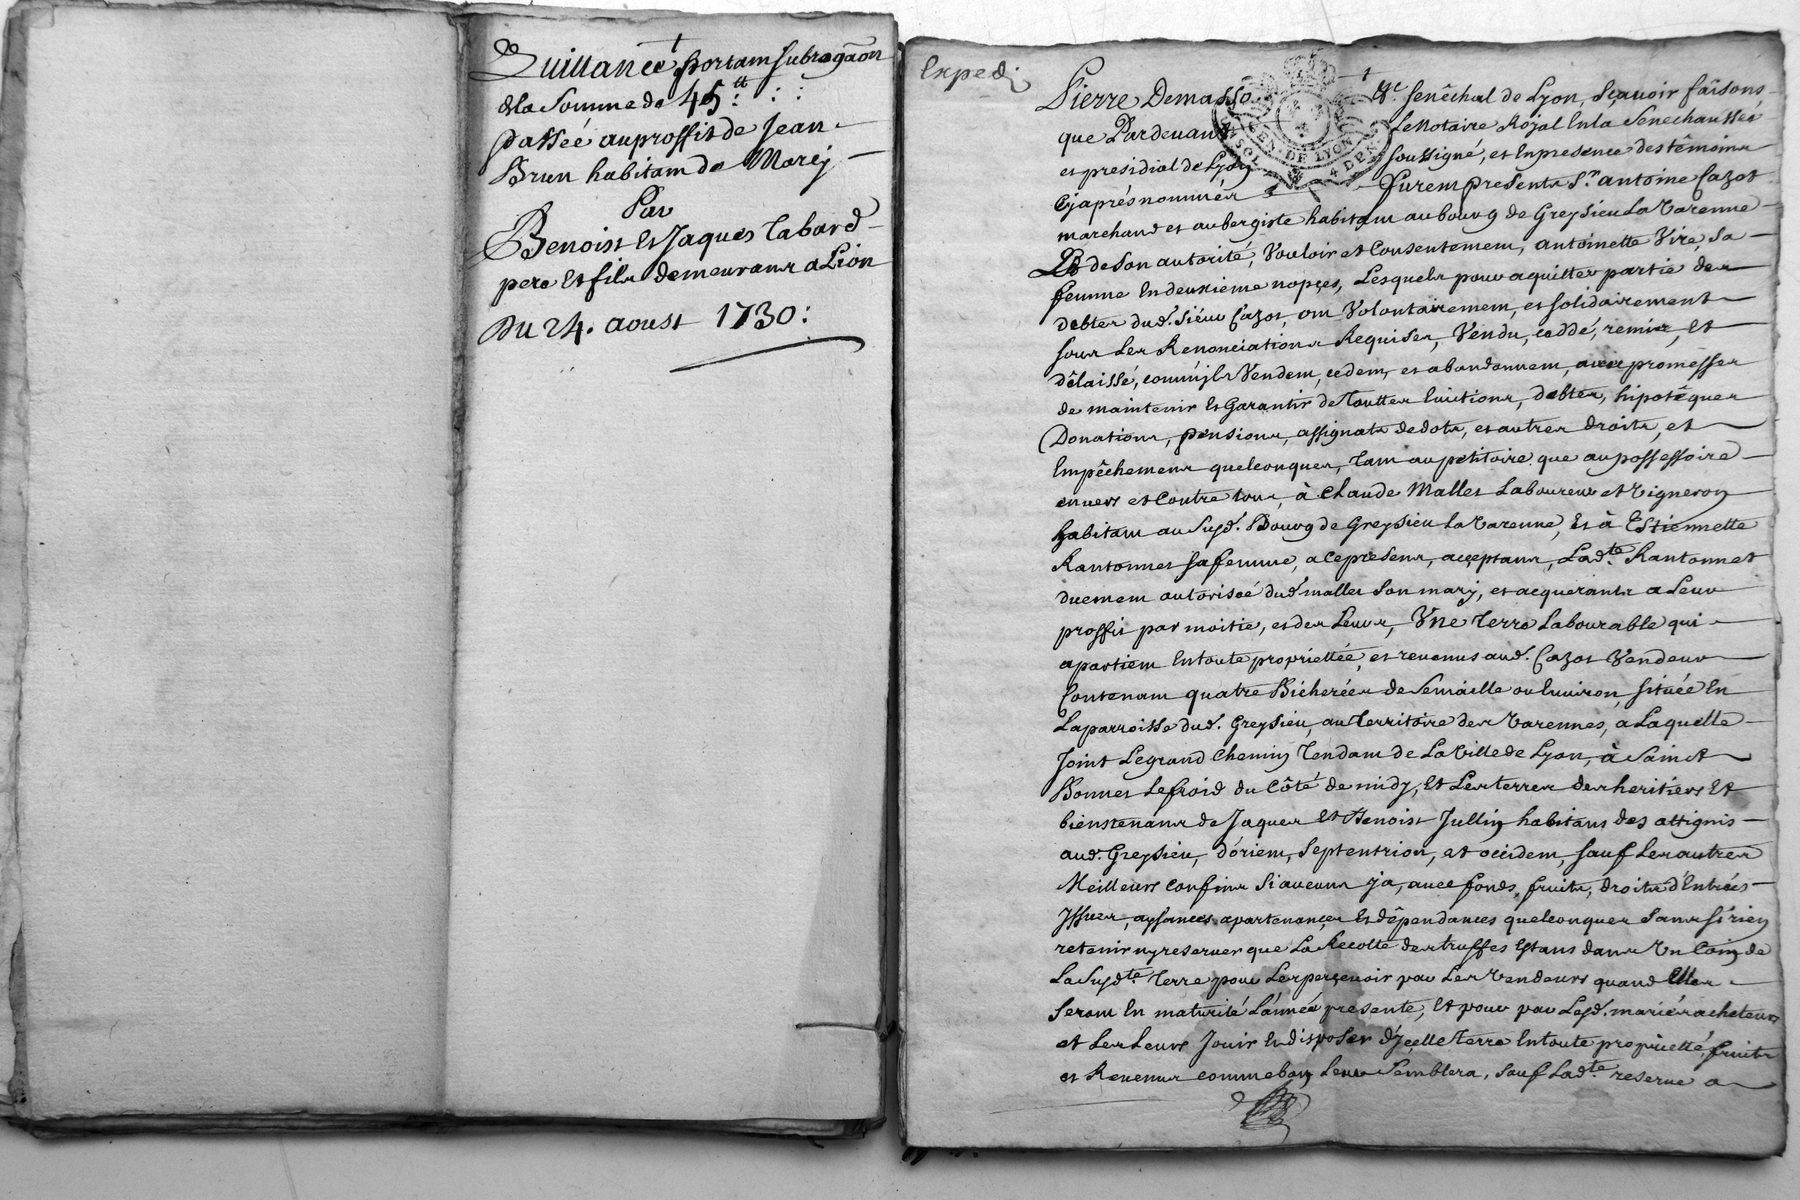 Quittance portant subrogãon
de la somme de 45tt : :
passée au proffit de Jean
Brun habitant de Morêj
Par
Benoist et Jaques Tabard
pere et fils demeurans a Lion
Du 24. aoust 1730 :
Exped.
Pierre Demasso Sr. senêchal de Lyon, sçavoir faisons
que Pardevant Le Notaire Royal en la senechaussée
et presidial de Lyon soussigné, et en presence des têmoins
cyaprés nommés furent presents Sr. antoine Cazot
marchand et aubergiste habitant au bourg de Greysieu La Varenne
Et de son autorité, vouloir et consentement, antoinette Vire, sa
femme en deuxième nopçes, Lesquels pour aquitter partie des
debtes dud. sieur Cazot, ont volontairement, et solidairement
sous les Renonciations Requises, vendu, ceddé, remis, et
dêlaissé, comm'jls vendent, cedent, et abandonnent, avec promesses
de maintenir et garantir de touttes évictions, debtes, hipotêques
Donations, pensions, assignats de dots, et autres droits, et
Empêchemens quelconques, tant au petitoire que au possessoire
envers et contre tous, à Claude Mallet Laboureur et Vigneron
habitant au susd. Bourg de Greysieu La Varenne, et à Estiennette
Rantonnet sa femme, a ce presens, acçeptans, Lad.te Rantonnet
duement autorisée dud. mallet son mary, et acquerants a Leur
proffit par moitie, et des Leurs, Une Terre Labourable qui
apartient en toute propriettée, et revenus aud. Cazot Vendeur
Contenant quatre Bicherées de semaille ou environ, située en
La parroisse dud. Greysieu, au Territoire des Varennes, a Laquelle
Joint Le grand Chemin Tendant de La Ville de Lyon, à Sainct
Bonnet Lefroid du Côté de midy, et Les terres des heritiers et
bienstenans de Jaques et Benoist Jullin habitans des attignis
aud. Greysieu, d'orient, septentrion, et occident, sauf Les autres
Meilleurs confins si aucuns y a, avec fonds, fruits, droits d'Entrées
Issues, aysances, apartenançes et dêpendances quelconques sans s'i rien
retenir ny reserver que La Recolte des truffes estans dans Un Coin de
La Susd.te Terre pour Les perçevoir par Les Vendeurs quand Elles
seront en maturité L'année presente, et pour par Lesd. mariés acheteurs
et Les Leurs Jouir et disposer d'Jçelle Terre en toute propriétté, fruits
et Revenus comme bon Leur semblera, sauf Lad.te reserve a